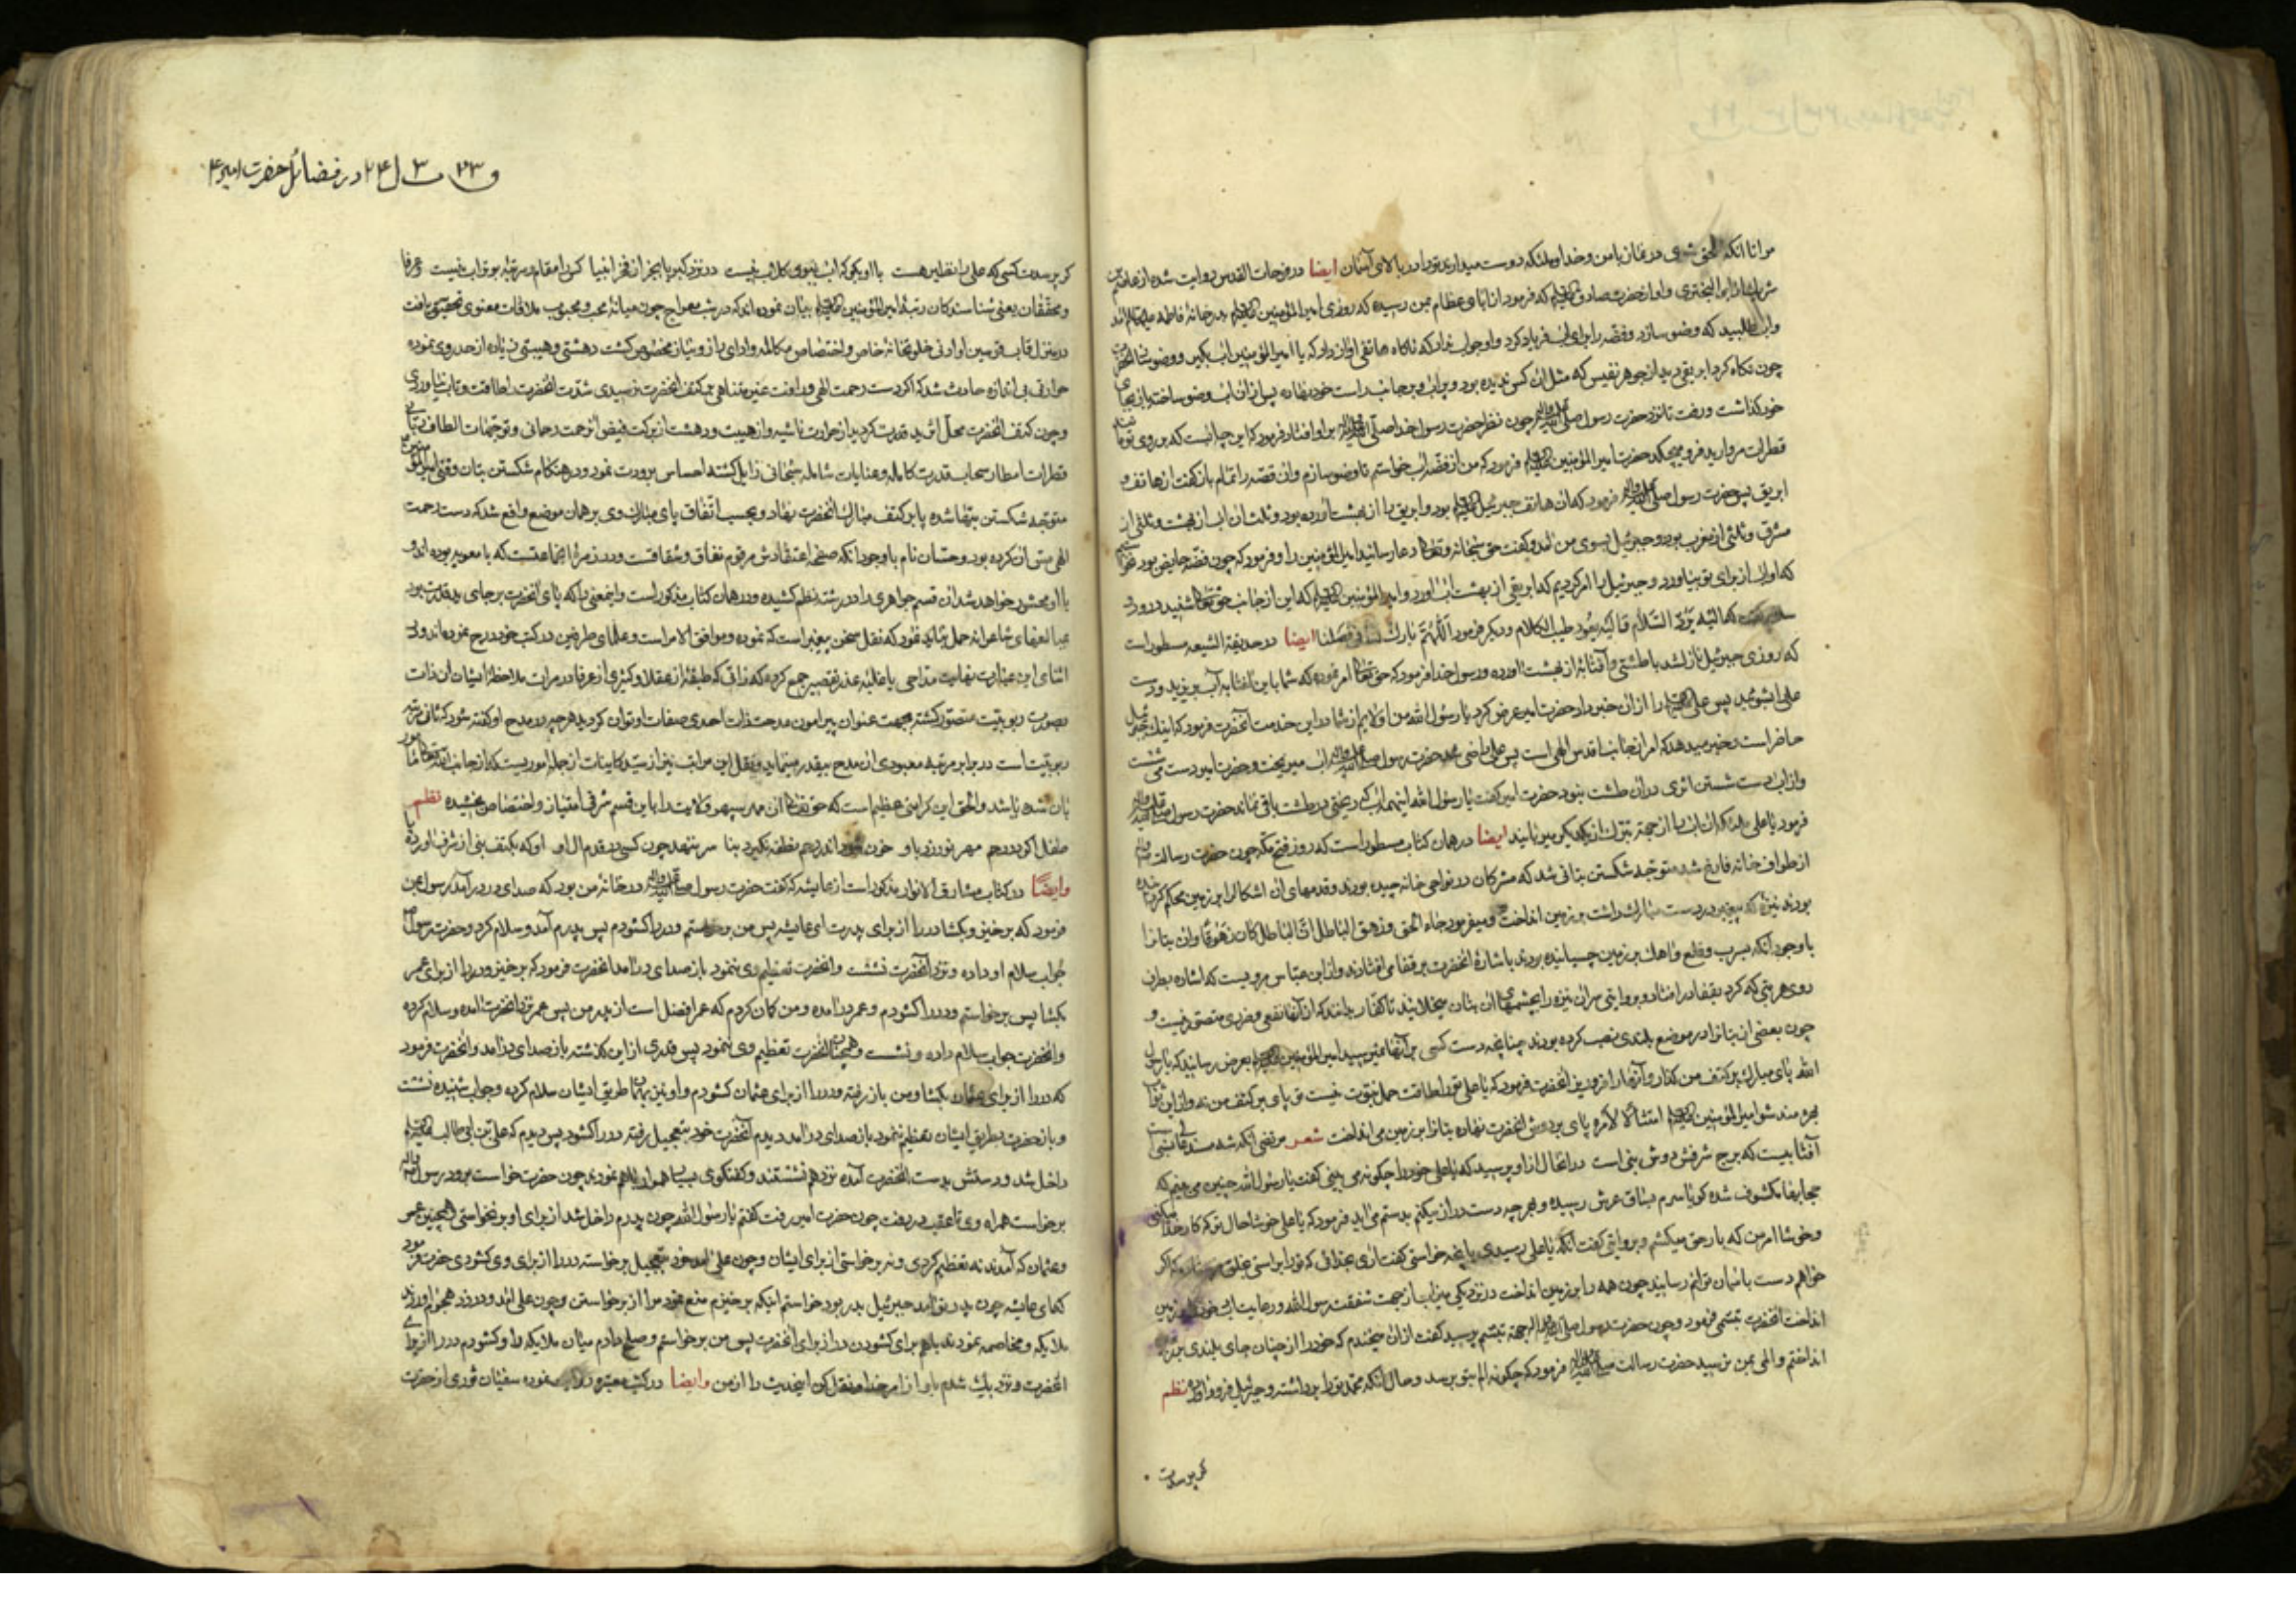 مرا تا انکه لاحق شدی در نماز با من و خدا و ملئکه دوست میدارند ترا در بالای آسمان ایضا در فوحات القدس روایت شده از
که فرمود از ابای عظام بمن رسیده که روزی امیر المؤمنین علیه السلام بدر خانهٔ فاطمه
واب طلبید که وضو سازد و فضه را برای اب فریاد کرد و او جواب نداد که ناکاه هاتفی اواز داد که یا امیر المؤمنین اب بکیر و وضو
چون نکاه کرد ابریقی دید از جوهر نفیس که مثل ان کس ندیده بود و پر اب و بر جانب راست خود نهاده پس از ان اب وضو ساخته باز بجای
خود کذاشت و رفت تا نزد حضرت رسول صلی الله علیه واله چون نظر حضرت رسول خدا صلی الله علیه واله بر او افتاد فرمود که این چه ابست که بر روی تو
قطرات مروارید فرو میچکد حضرت امیر المؤمنین علیه السلام فرمود که من از فضه اب خواستم تا وضو سازم و ان قصه را تمام باز کفت از هاتف و
ابریق پس حضرت رسول صلی الله علیه واله فرمود که ان هاتف جبرئیل علیه السلام بود و ابریق را از بهشت آورده بود و ثلث ان اب از بهشت و ثلثی از
مشرق و ثلثی از مغرب بود و جبرئیل بسوی من امد و کفت حق سبحانه و تعالی دعا رسانید امیر المؤمنین را و فرمود که چون فضه حایض بود
که او اب از برای تو بیاورد و جبرئیل را امر کردیم که ابریقی از بهشت اب اورد و امیر المؤمنین علیه السلام که این از جانب حق تعالی شنید
الیه یردّ السّلام و الیه یعود طیب الکلام و دیکر فرمود اللّهمّ بارک ایضا در حدیقة الشیعه مسطور است
که روزی جبرئیل نازل شد با طشتی و آفتابهٔ از بهشت اورده و رسول خدا فرمود که حق تعالی امر نموده که شما باین افتابه آب بریزید و دست
علی بشوئید پس علی علیه السلام را از ان خبر داد حضرت امیر عرض کرد یا رسول الله من اولایم از شما در این خدمت آنحضرت فرمود که اینک جبرئیل
حاضر است و خبر میدهد که امر از جانب اقدس الهی است پس علی راضی شد حضرت رسول صلی الله علیه واله اب میریخت و حضرت امیر دست می شست
و از اب دست شستن اثری در ان طشت نبود حضرت امیر کفت یا رسول الله اینهمه اب که ریختی در طشت باقی نماند حضرت رسول صلی الله علیه واله
فرمود یا علی ملئکه ان اب را از جهت تبرک از یکدیکر میربایند ایضا در همان کتاب مسطور است که روز فتح مکه چون حضرت رسالت
از طواف خانه فارغ شد متوجه شکستن بتانی شد که مشرکان در نواحی خانه چیده بودند و قدمهای ان اشکال را بر زمین محکم کرده
بودند نیزه که پیغمبر در دست مبارک داشت بر زمین انداخت و میفرمود جاء الحق و زهق الباطل انّ الباطل کان زهوقا و ان بتانرا
با وجود انکه بسرب و قلع و اهن بر زمین چسبانیده بودند باشارهٔ انحضرت بر قفا می افتادند و از ابن عباس مرویست که اشاره بطرف
روی هر بتی که کرد بقفا در افتاد و بروایتی سران نیزه را بچشمهای ان بتان میخلانید تا کفار بدانند که از آنها نفعی و ضرری متصور نیست و
چون بعضی از بتانرا در موضع بلندی نصب کرده بودند چنانچه دست کسی بر آنها نمیرسید امیر المؤمنین علیه السلام بعرض رسانید که یا رسول
الله پای مبارک بر کتف من کذار و آنها را فرو ریز انحضرت فرمود که یا علی ترا طاقت حمل نبوت نیست تو پای بر کتف من نه و از این ثواب
بهره مند شو امیر المؤمنین علیه السلام امتثالا لامره پای بر دوش انحضرت نهاده بتانرا بر زمین می انداخت شعر مرتضی انکه شد
آفتابیست که برج شرفش دوش نبی است در انحال از او پرسید که یا علی خود را چکونه می بینی کفت یا رسول الله چنین می بینم که
حجابها مکشوف شده کویا سرم بساق عرش رسیده و بهر چه دست دراز میکنم بدستم می اید فرمود که یا علی خوشا حال تو که کار خدا میکنی
و خوشا امر من که بار حق میکشم و بروایتی کفت انکه یا علی رسیدی بانچه خواستی کفت اری بخدائی که ترا براستی بخلق فرستاده که اکر
خواهم دست باسمان توانم رسانید چون همه را بر زمین انداخت در نزدیکی میزاب از جهت شفقت رسول الله و رعایت ادب خود را بر زمین
انداخت انحضرت تبسمی فرمود و چون حضرت رسول صلی الله علیه واله از جهت تبسم پرسید کفت از ان میخندم که خود را از چنان جای بلندی بزیر
انداختم و المی بمن نرسید حضرت رسالت صلی الله علیه واله فرمود که چکونه الم بتو برسد و حال انکه محمد ترا برداشته و جبرئیل فرود آورده نظم
کر پرسدت
در فضائل حضرت امیر ع
کر پرسدت کسی که علی را نظیر هست با او بکو که اب نبوی کلاب نیست در نزد کبریا بجز از فخر انبیا کس را مقام و مرتبهٔ بوتراب نیست و عرفا
و محققان یعنی شناسندکان رتبهٔ امیر المؤمنین علیه السلام بیان نموده اند که در شب معراج چون میانهٔ محب و محبوب ملاقات معنوی تحقیق یافت
در منزل قاب قوسین او ادنی خلوتخانهٔ خاص و اختصاص مکالمه و ادای راز و نیاز مخصوص کشت دهشتی و هیبتی زیاده از حد روی نموده
حرارتی بی اندازه حادث شد که اکر دست رحمت الهی و رافت غیر متناهی بر کتف انحضرت نرسیدی شدت انحضرت را طاقت و تاب نیاوردی
و چون کتف انحضرت محل اثر ید قدرت کردید از حرارت ناشیه و از هیبت و دهشت از برکت فیض اثر رحمت رحمانی و توجهات الطاف ربانی
قطرات امطار سحاب قدرت کامله و عنایات شامله سبحانی زایل کشته احساس برودت نمود و در هنکام شکستن بتان وقتی امیر المؤمنین
متوجه شکستن بتها شده پا بر کتف مبارک انحضرت نهاد و بحسب اتفاق پای مبارک وی بر همان موضع واقع شد که دست رحمت
الهی مس ان کرده بود و حسان نام با وجود انکه صفحهٔ اعتقادش مرقوم نفاق و شقاقست و در زمرهٔ انجماعتست که با معویه بوده اند و
با او محشور خواهد شد از قسم جواهری را در رشتهٔ نظم کشیده و در همان کتاب مذکور است و اینمعنی را که پای انحضرت بر جای ید قدرت بود
بمبالغهای شاعرانه حمل نباید نمود که نقل سخن پیغمبر است که نموده و موافق الامر است و علمای طرفین در کتب خود درج نموده اند و در
اثنای این عبارت نهایت مداحی با غلبهٔ عذر تقصیر جمع کرده که زانی که طبقهٔ از عقلا و کثیری از عرفا در مرات ملاحظهٔ ایشان ان ذات
بصورت ربوبیت متصور کشته بجهت عنوان پیرامون مدحت ذات احدی صفات او توان کردید هر چه در مدح او کفته شود که ثانی مرتبهٔ
ربوبیت است در برابر مرتبه معبودی ان مدح بیقدر مینماید و نقل این مراتب نیز از سید کاینات از جمله اموریست که از جانب الله تعالی مامور
بان شده باشد و الحق این کرامتی عظیم است که حق تعالی ان مهر سپهر ولایت را باین قسم شرفی امتیاز و اختصاص بخشیده نظم
طفل اکو در رحم مهر نورزد با او خون شود اندر رحم نطفه نکیرد بنا سر ننهد چون کسی در قدم ال او او که بکتف نبی از شرف اورد پا
وایضا در کتاب مشارق الانوار مذکور است از عایشه که کفت حضرت رسول صلی الله علیه واله در خانهٔ من بود که صدای در در آمد رسول بمن
فرمود که بر خیز و بکشا در را از برای پدرت ای عایشه پس من برخاستم و در را کشودم پس پدرم آمد و سلام کرد و حضرت رسول
جواب سلام او داده و نزد آنحضرت نشست و انحضرت تعظیم وی ننمود باز صدای در امد انحضرت فرمود که برخیز و در را از برای عمر
بکشا پس برخواستم و در را کشودم و عمر در امده و من کمان کردم که عمر افضل است از پدر من پس عمر نزد انحضرت امده و سلام کرده
و انحضرت جواب سلام داده و نشست و همچنان انحضرت تعظیم وی ننمود پس قدری از این کذشته باز صدای در امد و انحضرت فرمود
که در را از برای عثمان بکشا و من باز رفته و در را از برای عثمان کشودم و او نیز بهمان طریق ایشان سلام کرده و جواب شنیده نشست
و باز حضرت بطریق ایشان تعظیم ننمود باز صدای در امد دیدم آنحضرت خود بتعجیل رفته در را کشود پس دیدم که علی بن ابی طالب علیه السلام
داخل شد و دستش بدست انحضرت آمده نزد هم نشستند و کفتکوی بسیار با هم نمودند چون حضرت خواست برود رسول الله
برخواست همراه وی تا عقب در رفت چون حضرت امیر رفت کفتم یا رسول الله چون پدرم داخل شد از برای او بر نخواستی و همچنین عمر
و عثمان که آمدند نه تعظیم کردی و نه برخواستی از برای ایشان و چون علی امد خود بتعجیل برخاسته در را از برای وی کشودی حضرت فرمود
که ای عایشه چون پدر تو امد جبرئیل بدر بود خواستم اینکه برخیزم منع نمود مرا از برخواستن و چون علی امد و در زد هجوم اوردند
ملایکه و مخاصمه نمودند با هم برای کشودن در از برای انحضرت پس من برخواستم و صلح دادم میان ملایکه را و کشودم در را از برای
انحضرت و نزدیک شدم باو از امر خدا و نقل کن اینحدیث را از من وایضا در کتب معتبره نموده سفیان ثوری از حضرت